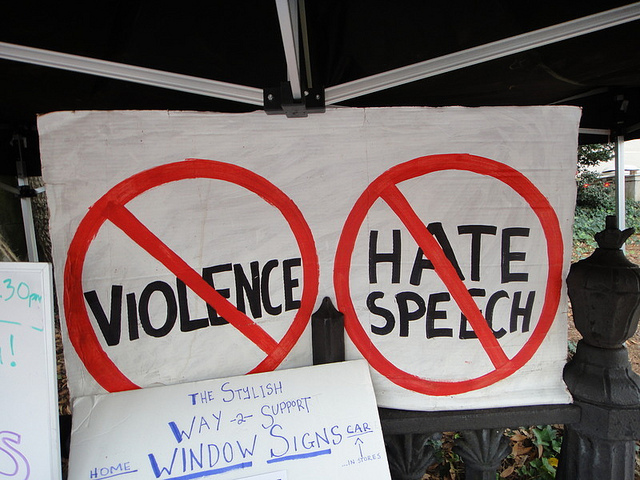 VIOLENCE
HATE
SPEECH
.30pm
!
S
THE STYLISH
WAY -2- SUPPORT
HOME WINDOW SIGNS CAR
...IN STORES